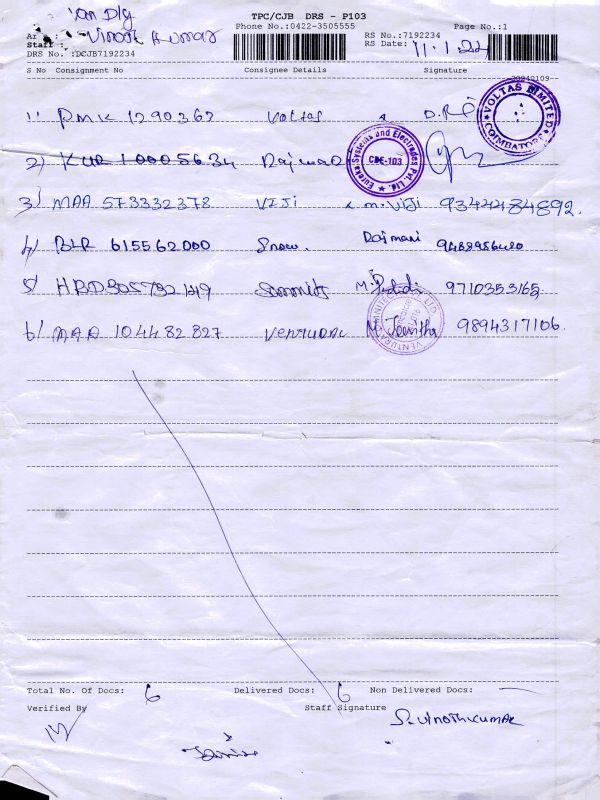 TPC/CJB DRS - P103
Phone No:0422-3505555
Page No.:1
Staff:
DRS No. :DCJB7192234
RS No.:7192234
RS Date: 11.1.22
S No Consignment No Consignee Details Signature
20240109
1) PMK 1290362 Voltas
VOLTAS LIMITED COIMBATORE
2) KUR 10005634
Eureka Systems and Electrodes Pvt. Ltd. CBE-103
3) MAA 573332378 VIJI m.viji 9344484892.
4) BLR 615562000 Snow. Rajmani 9488956420
5) HRD805792149 9710353165
6) MAA 104482827 M. Jeevitha 9894317106.
Total No. Of Docs: 6 Delivered Docs: 6 Non Delivered Docs: —
Verified By Staff Signature S. vinothkumar